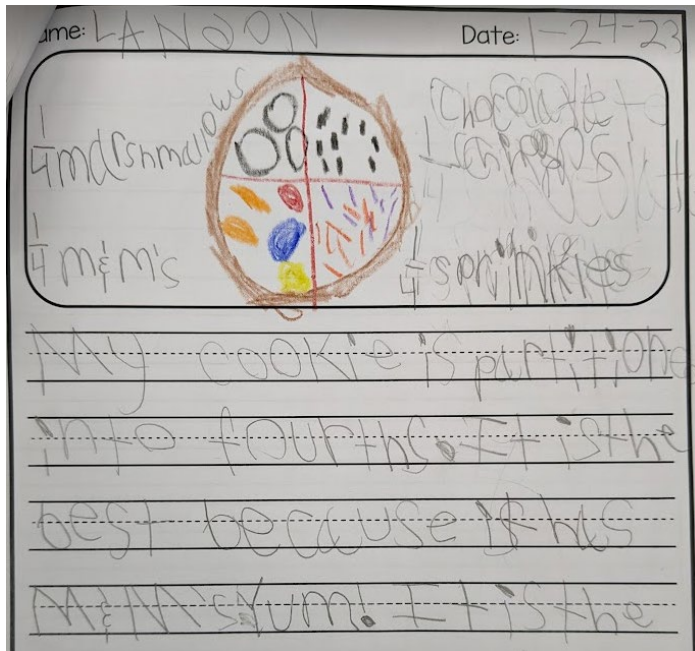 ame: LANDON Date: 1-24-23
1/4 marshmallows
1/4 m&m's
chocolate
1/4
1/4 sprinkles
My cookie is partitione
into fourths. It is the
best because it has
M&M's Yum! It is the